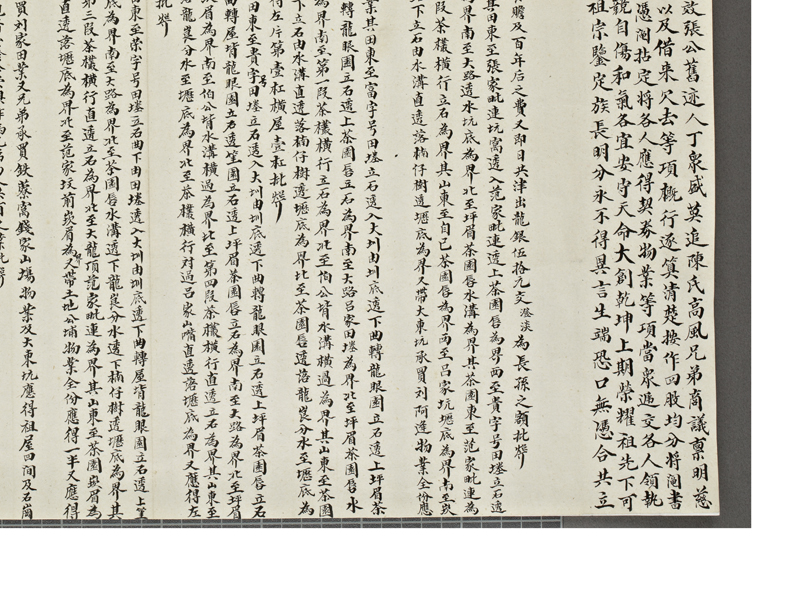 效張公舊迹人丁衆盛莫追陳氏高風兄弟商議稟明慈
以及借來欠去等項概行逐算清楚搡作四股均分將鬮書
憑鬮拈定將各人應得契券物業等項當衆逓交各人領執
競自傷和氣各宜安守天命大創乾坤上期榮耀祖先下可
祖宗鑒定族長明分永不得異言生端恐口無憑合共立
贍及百年后之費又即日共津出龍銀伍拾九交添淡為長孫之額批炤
其田東至張家毗連坑窩透入范家毗連透上茶園唇為界西至貴字号田塍立石透
界南至大路透水坑底為界北至坪眉茶園唇水溝為界其茶園東至范家毗連為
段茶欉橫行立石為界其山東至自己茶園唇為界西至呂家坑壢底為界南至崁
下立石由水溝直透落楠仔樹透壢底為界又帶大東坑承買刘阿蓮物業全份應
業其田東至富字号田塍立石透入大圳由圳底透下曲轉龍眼園立石透上坪眉茶
轉龍眼園立石透上茶園唇立石為界南至大路呂家田塍為界北至坪眉茶園唇水
為界南至第二段茶欉橫行立石為界北至伯公背水溝橫過為界其山東至茶園
立石由水溝直透落楠仔樹透壢底為界北至茶園唇透落龍崀分水至壢底為
得左片第壹杠橫屋壹杠批炤
田東至貴字号田塍立石透入大圳由圳底透下曲轉龍眼園立石透上坪眉茶園唇立石
曲轉屋背龍眼園立石透笪園立石透上坪眉茶園唇立石為界南至大路為界北至坪眉
眉為界南至伯公背水溝橫過為界北至第四段茶欉橫行直透立石為界其山東至
落龍崀分水至壢底為界北至茶欉橫行对過呂家山嘴直透落壢底為界又應得左
批炤
田東至榮字号田塍立石曲下由田塍透入大圳由圳底透下曲轉屋背龍眼園立石透上笪
底為界南至大路為界北至茶園唇水溝透下龍崀分水透下楠仔樹透壢底為界其
第三段茶欉橫行直透立石為界北至大龍頂范家毗連為界其山東至茶園崁眉為
直透落壢底為界北至范家坟前崁眉為界又帶土地公埔物業全份應得一半又應得
買刘家田業又兄弟承買鉄藔窩錢家山塲物業及大東坑應得祖屋四間及石崗